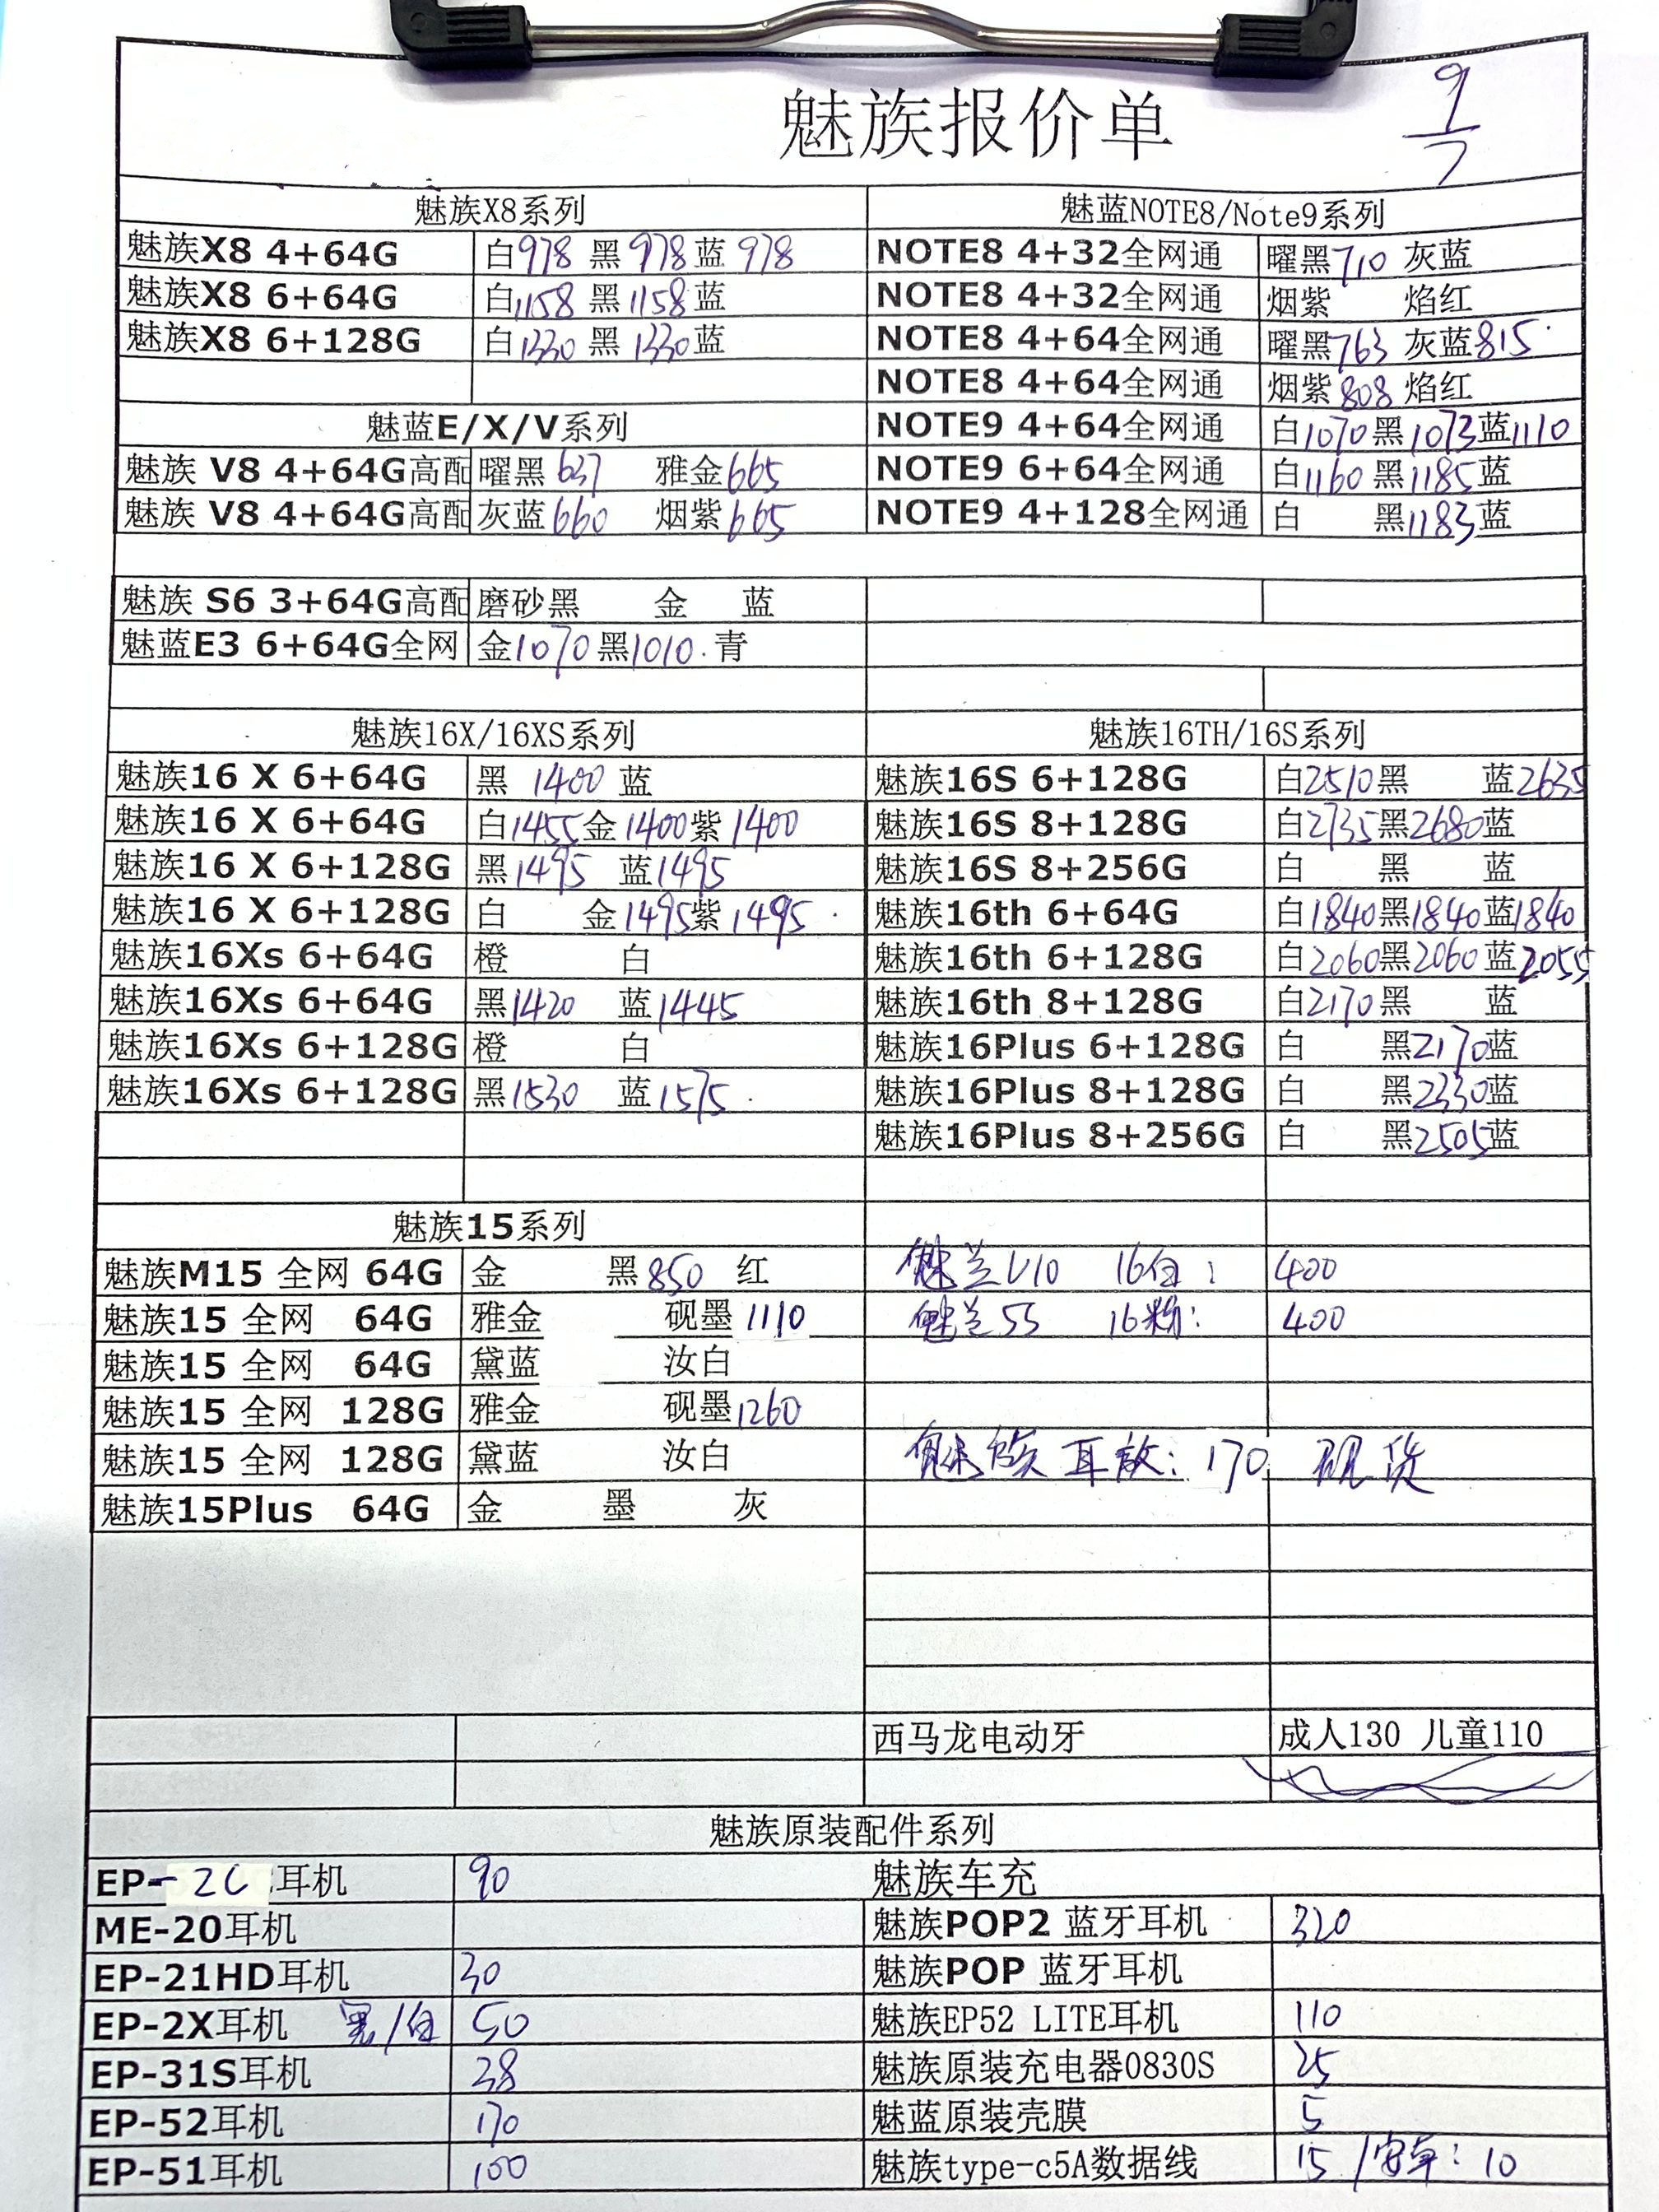 魅族报价单
9/7
魅族X8系列
魅族X8 4+64G 白978 黑978 蓝978
魅族X8 6+64G 白1158 黑1158 蓝
魅族X8 6+128G 白1330 黑1330 蓝
魅蓝E/X/V系列
魅族 V8 4+64G高配 曜黑637 雅金665
魅族 V8 4+64G高配 灰蓝660 烟紫665
魅蓝NOTE8/Note9系列
NOTE8 4+32全网通 曜黑710 灰蓝
NOTE8 4+32全网通 烟紫 焰红
NOTE8 4+64全网通 曜黑763 灰蓝815
NOTE8 4+64全网通 烟紫808 焰红
NOTE9 4+64全网通 白1070 黑1073 蓝1110
NOTE9 6+64全网通 白1160 黑1185 蓝
NOTE9 4+128全网通 白 黑1183 蓝
魅族 S6 3+64G高配 磨砂黑 金 蓝
魅蓝E3 6+64G全网 金1070 黑1010. 青
魅族16X/16XS系列
魅族16 X 6+64G 黑 1400 蓝
魅族16 X 6+64G 白1455 金1400 紫1400
魅族16 X 6+128G 黑1495 蓝1495
魅族16 X 6+128G 白 金1495 紫1495.
魅族16Xs 6+64G 橙 白
魅族16Xs 6+64G 黑1420 蓝1445
魅族16Xs 6+128G 橙 白
魅族16Xs 6+128G 黑1530 蓝1575.
魅族16TH/16S系列
魅族16S 6+128G 白2510 黑 蓝2635
魅族16S 8+128G 白2735 黑2680 蓝
魅族16S 8+256G 白 黑 蓝
魅族16th 6+64G 白1840 黑1840 蓝1840
魅族16th 6+128G 白2060 黑2060 蓝2055
魅族16th 8+128G 白2170 黑 蓝
魅族16Plus 6+128G 白 黑2170 蓝
魅族16Plus 8+128G 白 黑2330 蓝
魅族16Plus 8+256G 白 黑2505 蓝
魅族15系列
魅族M15 全网 64G 金 黑850 红
魅族15 全网 64G 雅金 砚墨1110
魅族15 全网 64G 黛蓝 汝白
魅族15 全网 128G 雅金 砚墨1260
魅族15 全网 128G 黛蓝 汝白
魅族15Plus 64G 金 墨 灰
魅兰V10 16白: 400
魅兰5S 16粉: 400
魅族耳放: 170 现货
西马龙电动牙 成人130 儿童110
魅族原装配件系列
EP-2C 耳机 90
ME-20耳机
EP-21HD耳机 30
EP-2X耳机 黑/白 50
EP-31S耳机 38
EP-52耳机 170
EP-51耳机 100
魅族车充
魅族POP2 蓝牙耳机 320
魅族POP 蓝牙耳机
魅族EP52 LITE耳机 110
魅族原装充电器0830S 25
魅蓝原装壳膜 5
魅族type-c5A数据线 15 /安卓: 10